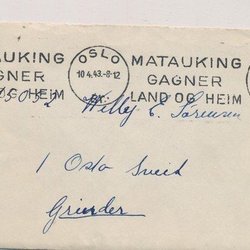 AUKING OSLO MATAUKING
GNER 10.4.43-8-12 GAGNER
OG HEIM LAND OG HEIM
Willy E. Sørensen
1 Oslo
Grinder